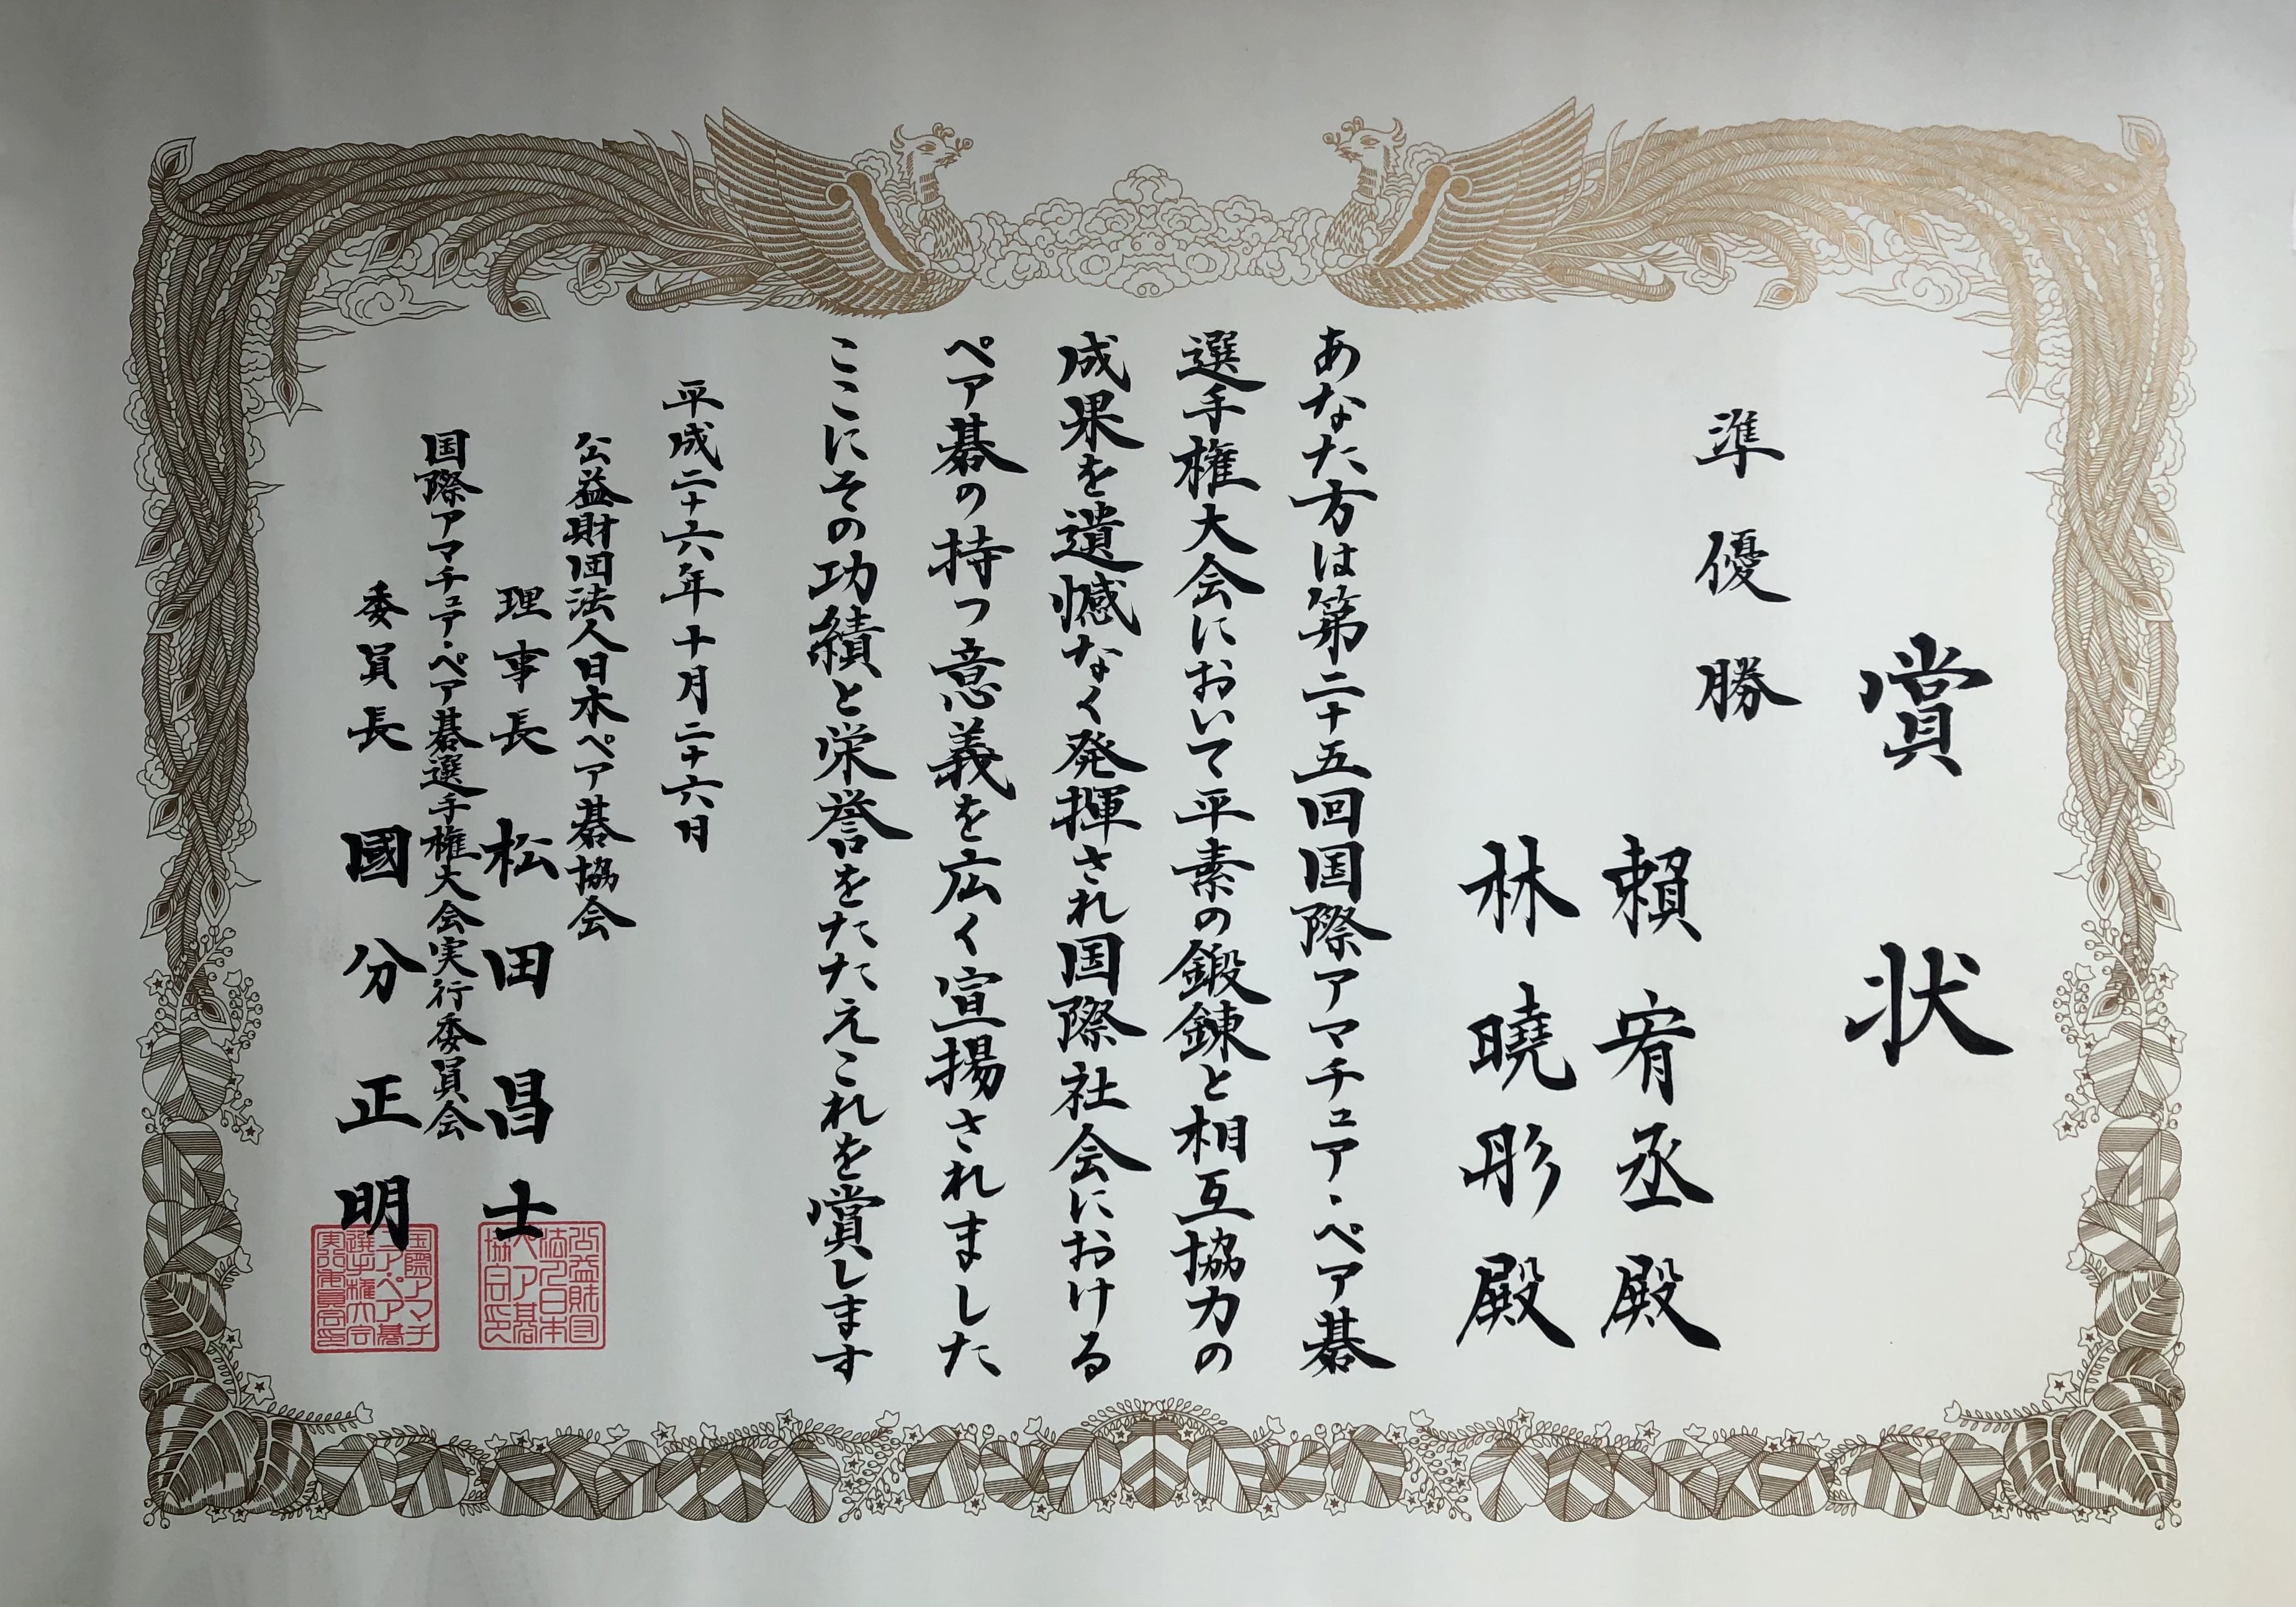 賞状
準優勝
賴宥丞殿
林曉彤殿
あなた方は第二十五回国際アマチュア・ペア碁
選手権大会において平素の鍛錬と相互協力の
成果を遺憾なく発揮され国際社会における
ペア碁の持つ意義を広く宣揚されました
ここにその功績と栄誉をたたえこれを賞します
平成二十六年十月二十六日
公益財団法人日本ペア碁協会
理事長 松田昌士
国際アマチュア・ペア碁選手権大会実行委員会
委員長 國分正明
公益財団
法人日本
ペア碁
協会印
国際アマチ
ュア・ペア碁
選手権大会
実行委員会印